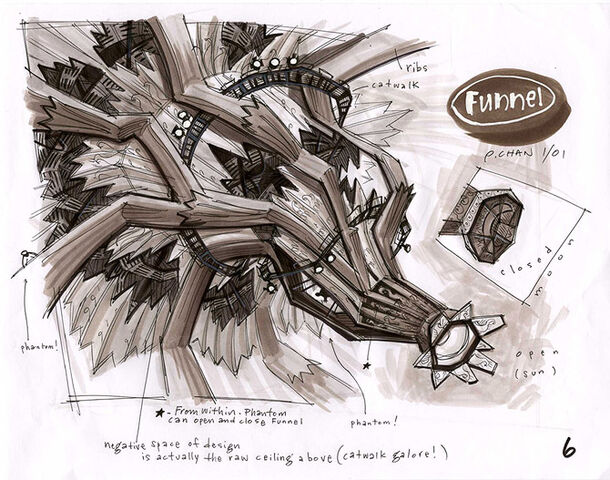 ribs
catwalk
Funnel
P.CHAN 1/01
closed
moon
open
(sun)
phantom!
★ - From within - Phantom
can open and close Funnel
phantom!
★
negative space of design
is actually the raw ceiling above (catwalk galore!)
6